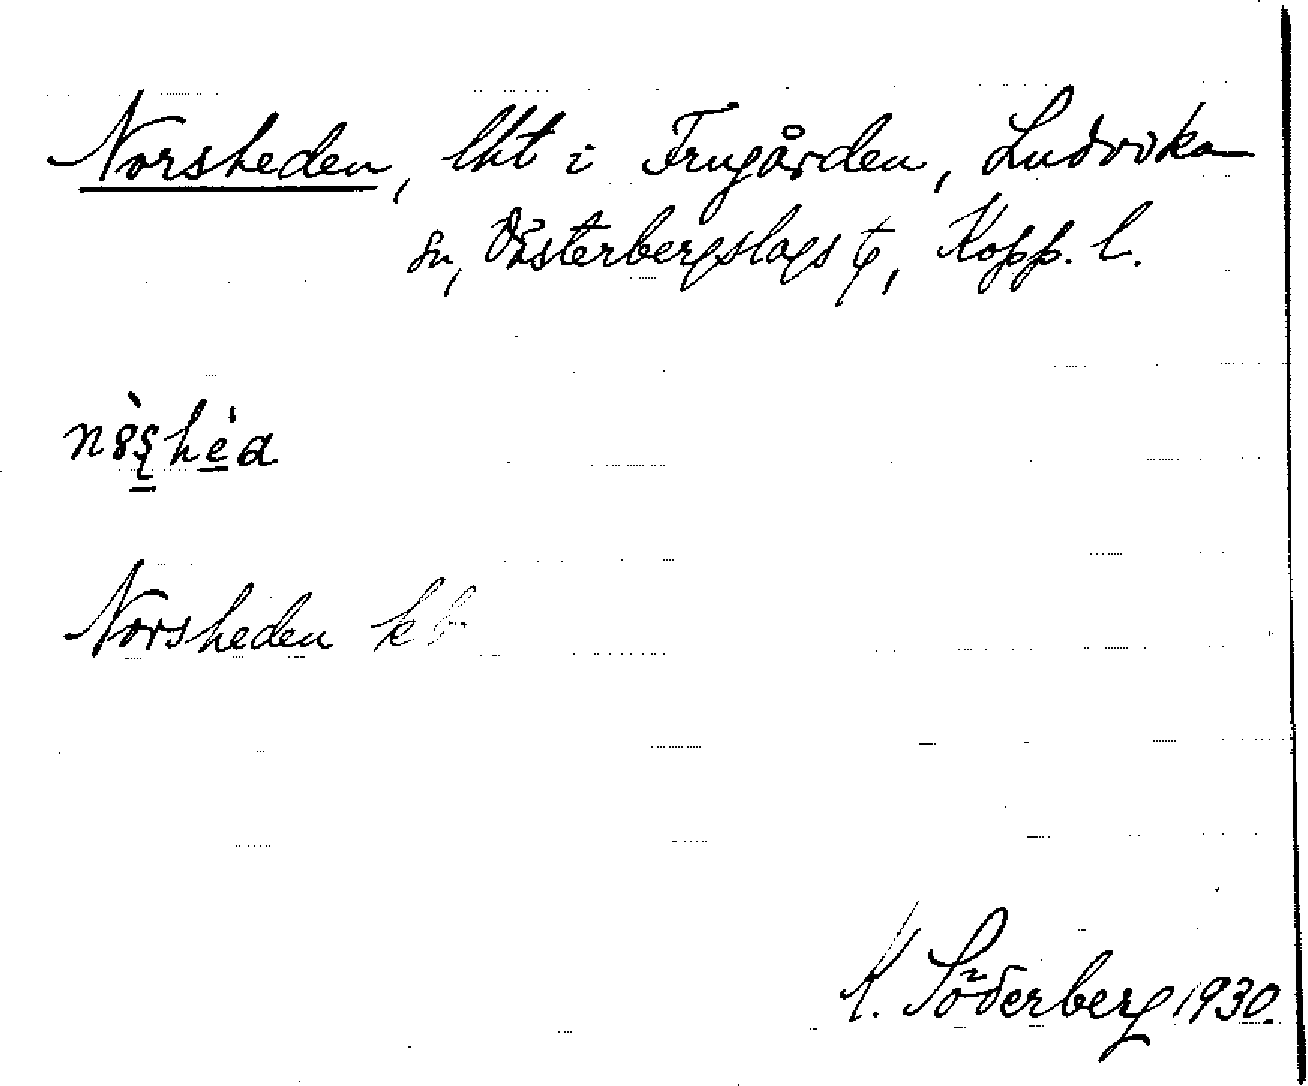 Norsheden, lht i Frugården, Ludvika
sn, Västerbergslags tg, Kopp. l.
Norsheden kb
K. Söderberg 1930.